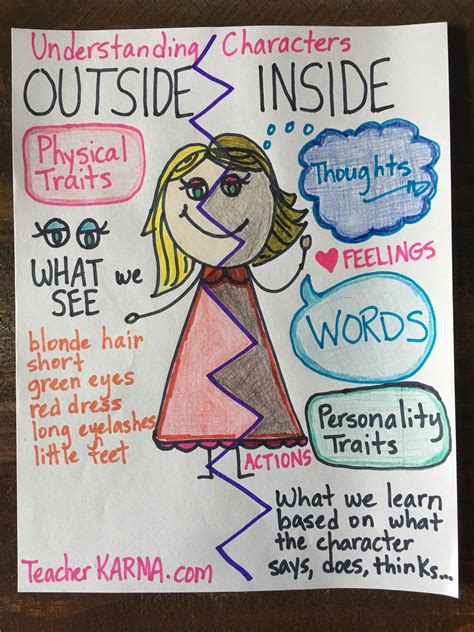 Understanding Characters
OUTSIDE INSIDE
Physical
Traits
WHAT we
SEE
blonde hair
short
green eyes
red dress
long eyelashes
little feet
Thoughts
FEELINGS
WORDS
Personality
Traits
ACTIONS
What we learn
based on what
the character
says, does, thinks...
TeacherKARMA.com